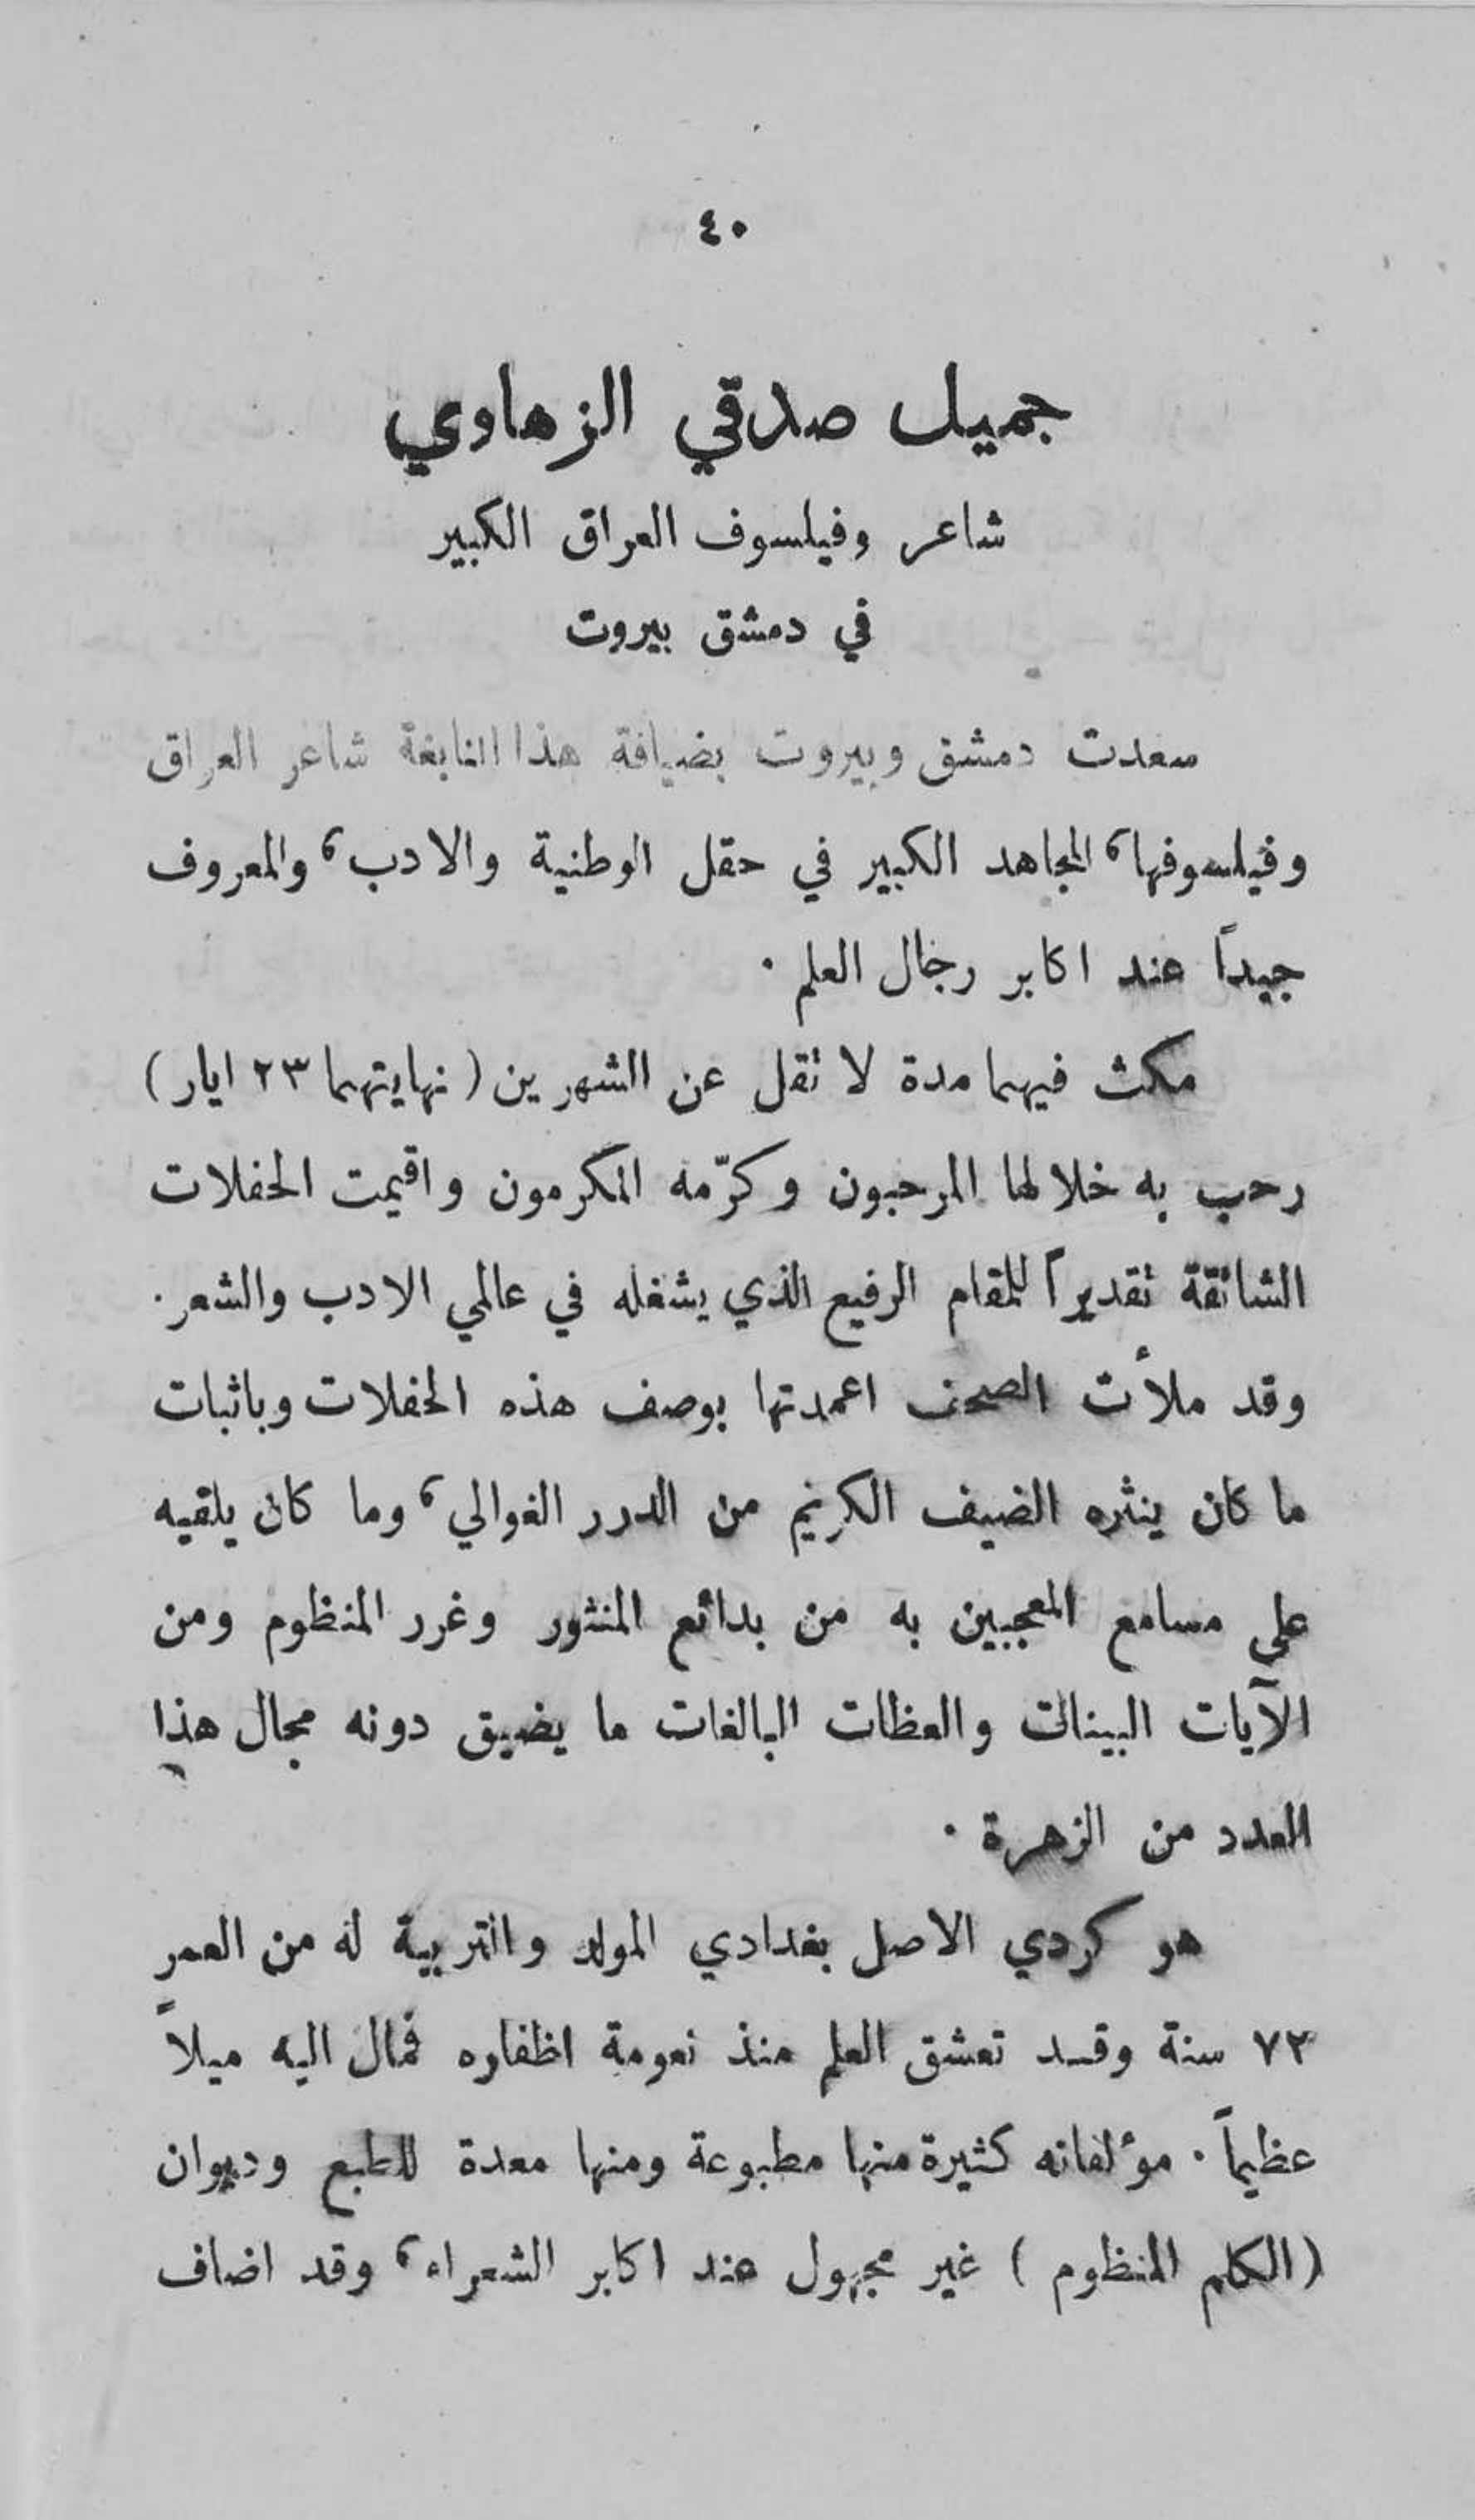 ٤٠
جميل صدقي الزهاوي
شاعر وفيلسوف العراق الكبير
في دمشق بيروت
سعدت دمشق وبيروت بضيافة هذا النابغة شاعر العراق
وفيلسوفها، المجاهد الكبير في حقل الوطنية والادب، والمعروف
جيداً عند اكابر رجال العلم ·
مكث فيهما مدة لا تقل عن الشهرين ( نهايتهما ٢٣ ايار )
رحب به خلالها المرحبون وكرّمه المكرمون واقيمت الحفلات
الشائقة تقديراً للمقام الرفيع الذي يشغله في عالمي الادب والشعر ·
وقد ملأت الصحف اعمدتها بوصف هذه الحفلات وباثبات
ما كان ينثره الضيف الكريم من الدرر الغوالي، وما كان يلقيه
على مسامع المعجبين به من بدائع المنثور وغرر المنظوم ومن
الآيات البينات والعظات البالغات ما يضيق دونه مجال هذا
العدد من الزهرة ·
هو كردي الاصل بغدادي المولد والتربية له من العمر
٧٢ سنة وقد تعشق العلم منذ نعومة اظفاره فمال اليه ميلاً
عظيماً · مؤلفاته كثيرة منها مطبوعة ومنها معدة للطبع وديوان
( الكلم المنظوم ) غير مجهول عند اكابر الشعراء، وقد اضاف